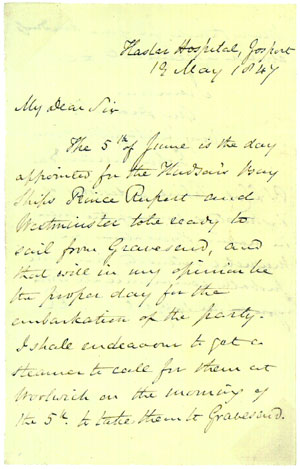 Haslar Hospital, Gosport
19 May 1847
My Dear Sir
The 5th of June is the day
appointed for the Hudson's Bay
Ships Prince Rupert and
Westminster to be ready to
sail from Gravesend, and
that will in my opinion be
the proper day for the
embarkation of the party.
I shall endeavour to get a
steamer to call for them at
Woolwich on the morning of
the 5th. to take them to Gravesend.